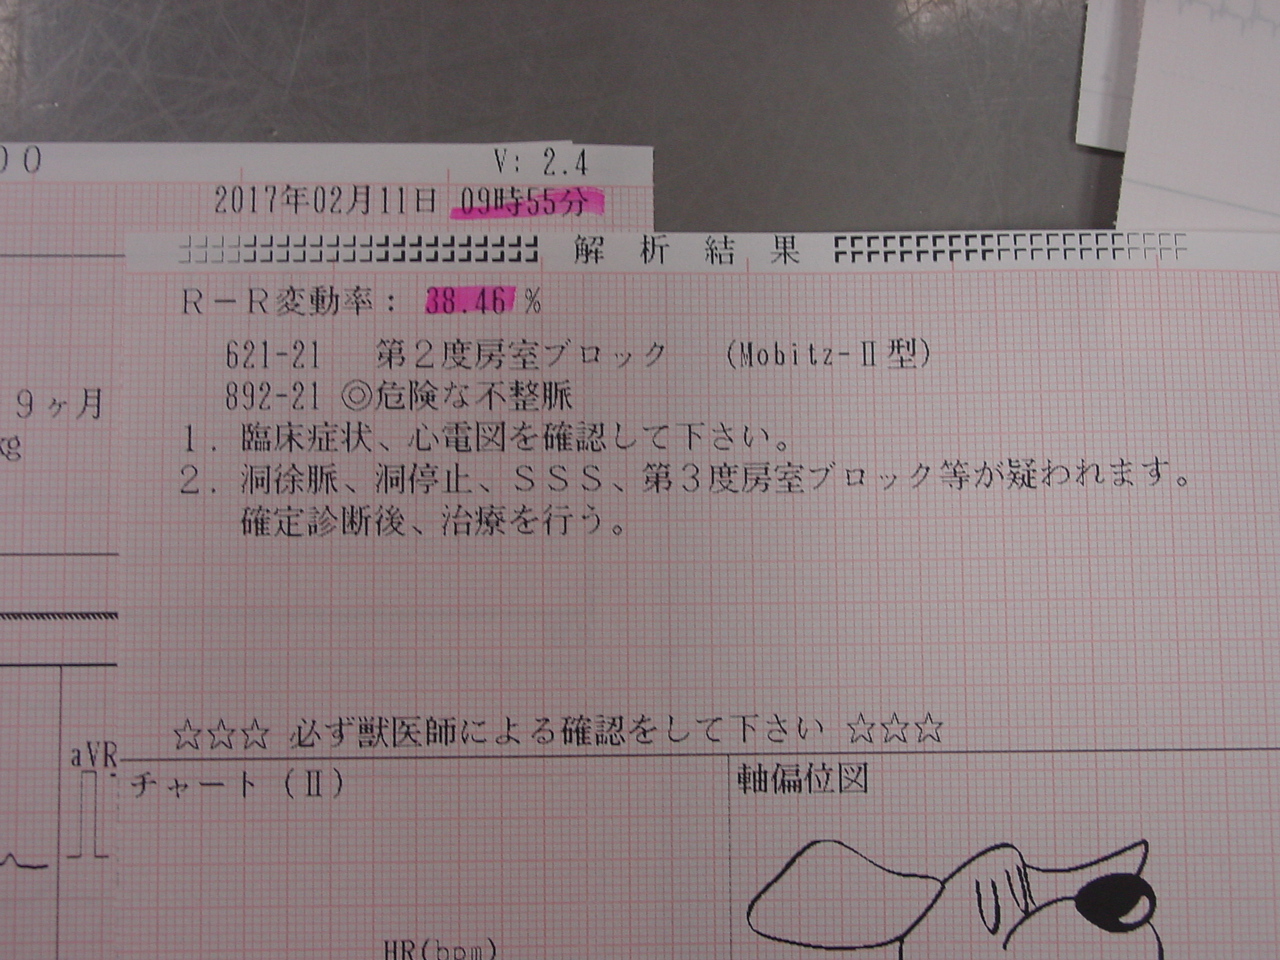 00
V: 2.4
2017年02月11日 09時55分
解析結果
R-R変動率: 38.46 %
621-21 第2度房室ブロック (Mobitz-Ⅱ型)
892-21 ◎危険な不整脈
9ヶ月
kg
1. 臨床症状、心電図を確認して下さい。
2. 洞徐脈、洞停止、SSS、第3度房室ブロック等が疑われます。
確定診断後、治療を行う。
☆☆☆ 必ず獣医師による確認をして下さい ☆☆☆
aVR
チャート(Ⅱ)
軸偏位図
HR(bpm)